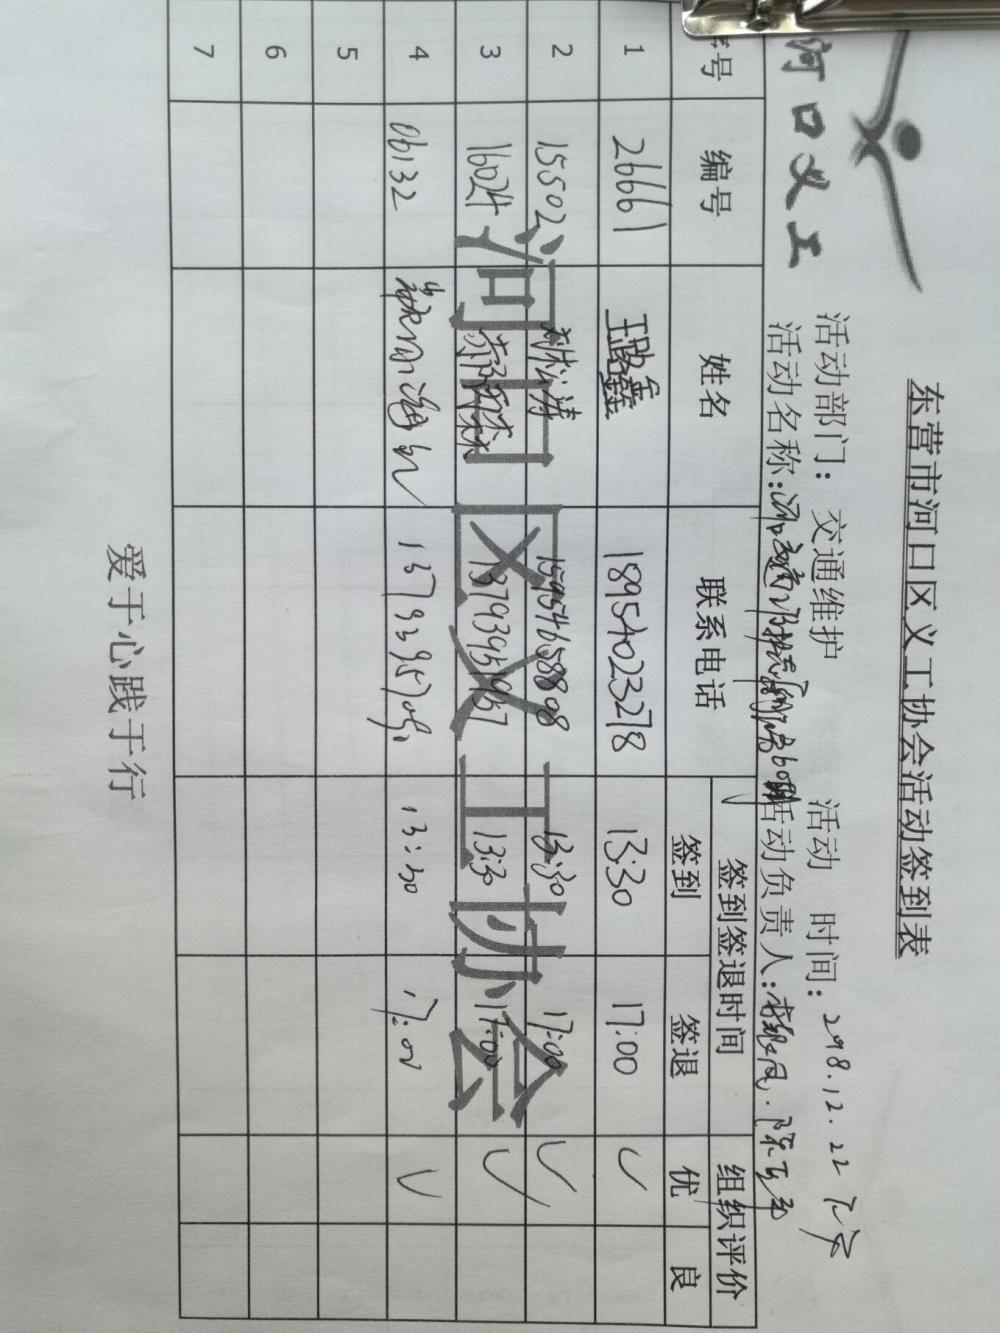 河口义工
东营市河口区义工协会活动签到表
活动部门：交通维护 活动 时间：2018.12.22
活动名称： 活动负责人：
序号 编号 姓名 联系电话 签到签退时间 组织评价
签到 签退 优 良
1 26661 王路鑫 18954023278 13:30 17:00 ✓
2 15502 刘松涛 15954658808 13:30 17:00 ✓
3 16024 13793951967 13:30 17:00 ✓
4 06132 13:30 17:00 ✓
5
6
7
河口区义工协会
爱于心践于行